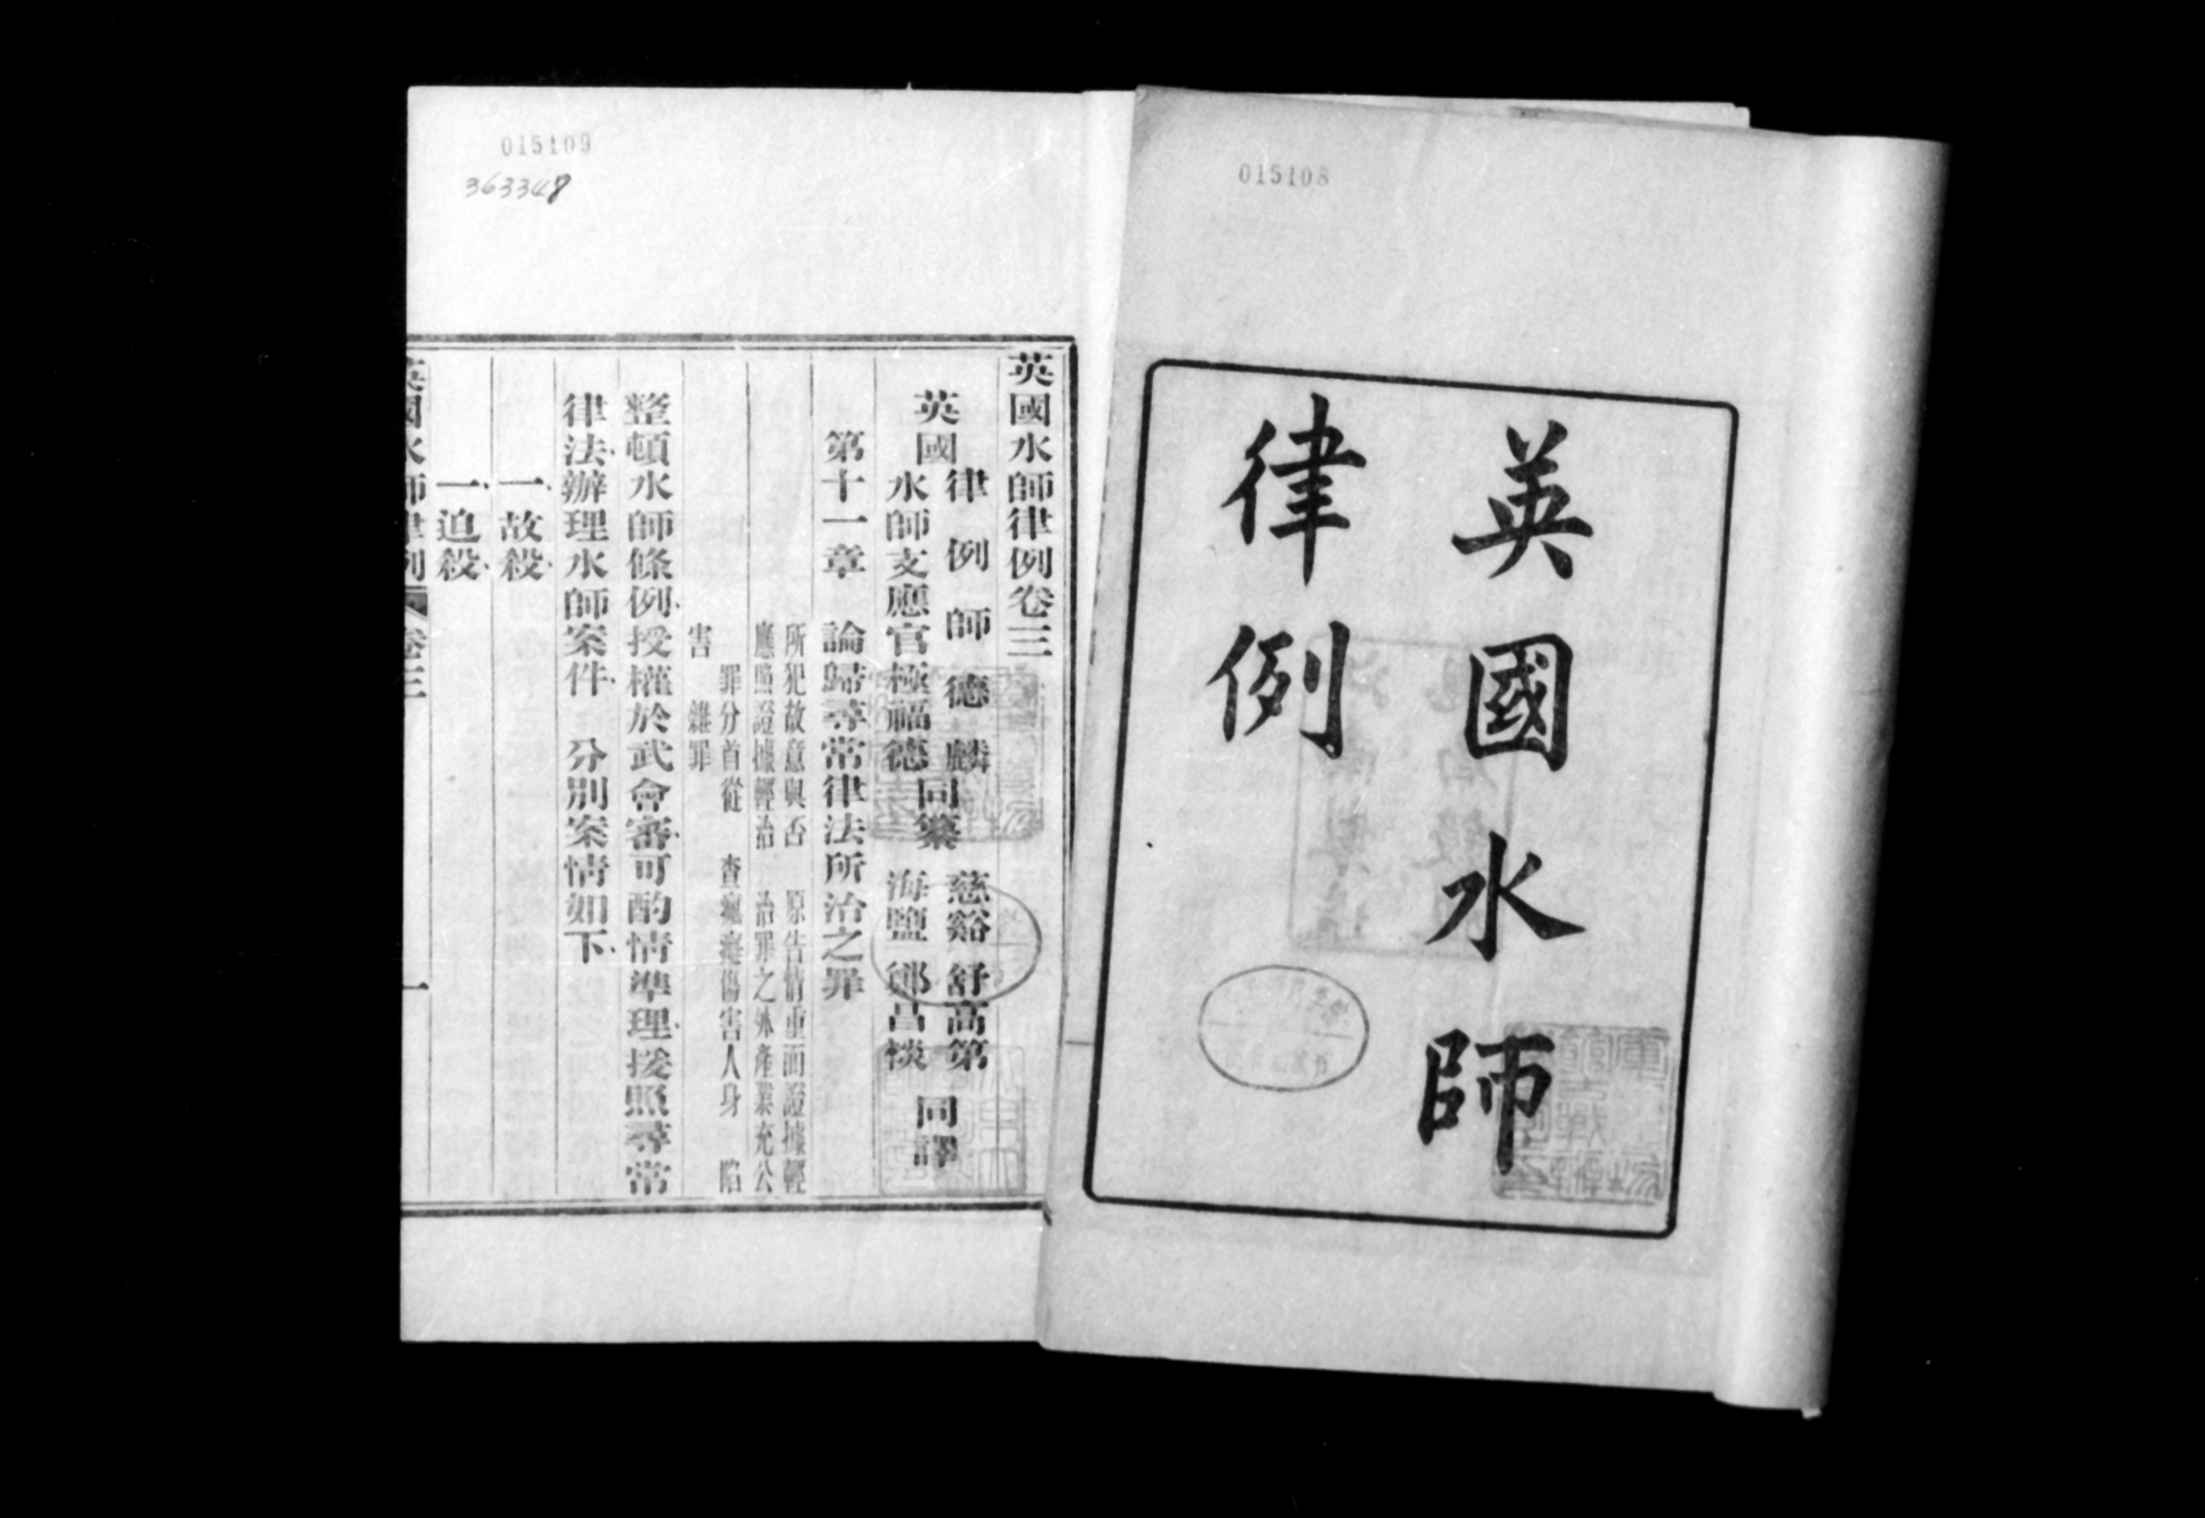 015108
英國水師
律例
015109
363348
英國水師律例卷三
英國 律例師德麟 水師支應官極福德 同纂 慈谿舒高第 海鹽鄭昌棪 同譯
第十一章 論歸尋常律法所治之罪
所犯故意與否 原告情重而證據輕
應照證據輕治 治罪之外產業充公
罪分首從 查瘋癡傷害人身 陷
害 雜罪
整頓水師條例授權於武會審可酌情準理援照尋常
律法辦理水師案件 分別案情如下
一故殺
一迫殺
英國水師律例 卷三 一